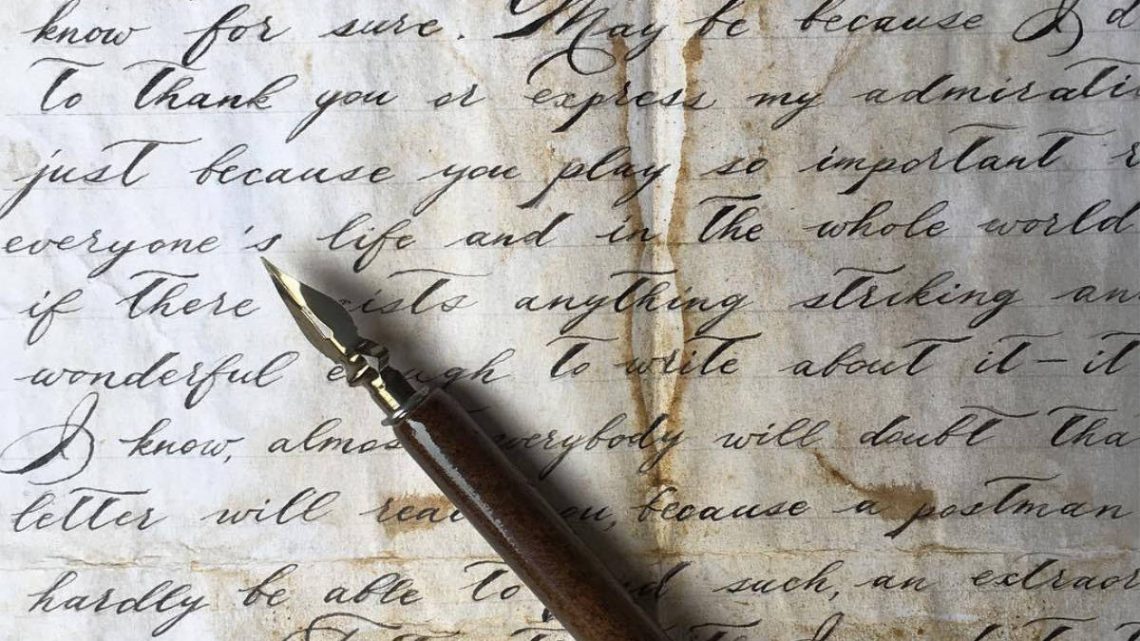 know for sure. May be because I d
to thank you or express my admirati
just because you play so important r
everyone's life and in the whole world
if there ists anything striking an
wonderful to write about it - it
I know, almos verybody will doubt tha
letter will rea ou, because a postman
hardly be able to such, an extraor